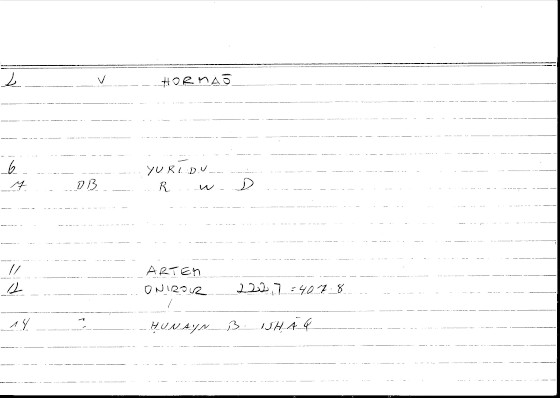 L V HORMAŌ
6 YURĪDU
7 DB R W D
11 ARTEM
12 ONIROCR 222,7 = 407-8
14 : HUNAYN B ISHĀQ